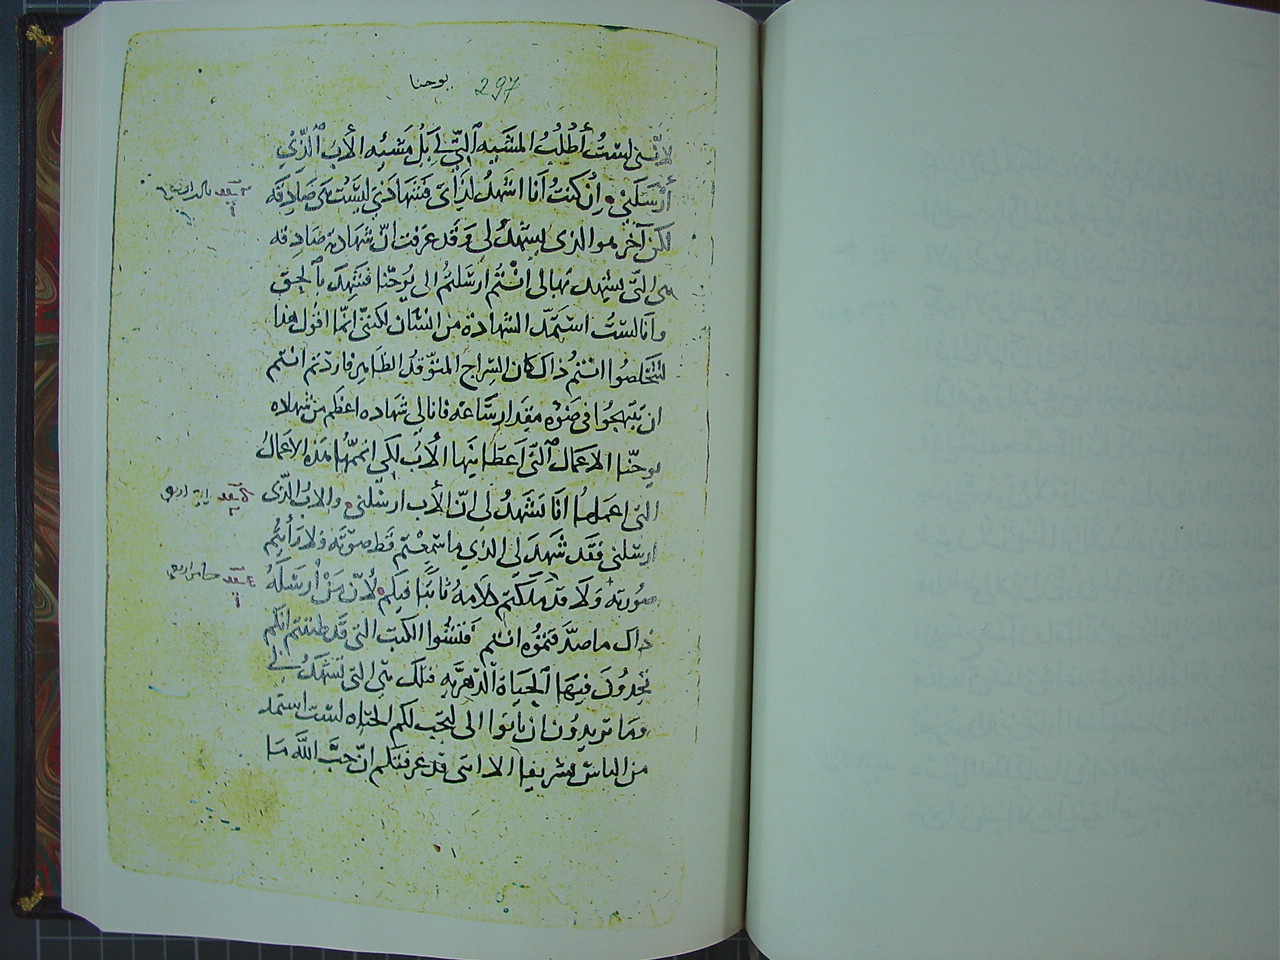 يوحنا 297
لاِنّني لسْتُ أَطْلُبُ المشَيه ٱلتّي لِي بَلْ مَشيُه الأَبُ ٱلذِّيْ
أَرْسَلَنيْ إِنْ كنتُ أَنَا اشهَدُ لِذَاتي فَشهَادَتي ليسَتْ هي صَادِقَه
لكنْ آخر هو الذى يسْهَدُ لي وقد عرفت انّ شهادته صَادقه
هي التّى يشهد بَها لى انْتُم ارسَلتمُ الى يُوحَنّا فشَهِدَ بٱلحق
وأنَا لسْتُ اسْتَمدّ الشهادة من انسَان لكننّي انّما اقول هذا
لتتخلصُوا انتمُ ذاك كان السِراج المتوّقدُ الظاهر فاردتم انتم
ان تبتهجوا في ضَوْه مقِدَار سَاعه فانا لي شهاده اعظم من شهاده
يوحنّا الاعمال ٱلتّي اعطَانيها الأَبُ لكي اتممّهُا هَذه الاعمَالُ
التى اعملهُا انَا تَشهَدُ لى انّ الأَب ارسْلني والابُ الذّى
ارسلنى فقَد شهَدَ لي الذي ما سَمعْتم قط صوتَه ولا رأيتمُ
صُورته وَلَا قد ملكتم كلامهُ ثابتًا فيكم لأنّ مَنْ أَرسَلَهُ
ذاك ما صدَّقتموُه انتم فَتّشُوا الكتبَ التى قد ظننتم انّكم
تجدُونَ فيهَا ٱلحيَاة الدّهريّه فتلك هي التى تشهَدُ لي
ومَا تريدُون ان تاتوا الى لتجب لكم الحيَاه لسْت استمد
من الناس تشريفا الا انني قد عرفتكم انّ حبَّ اللّه مَا